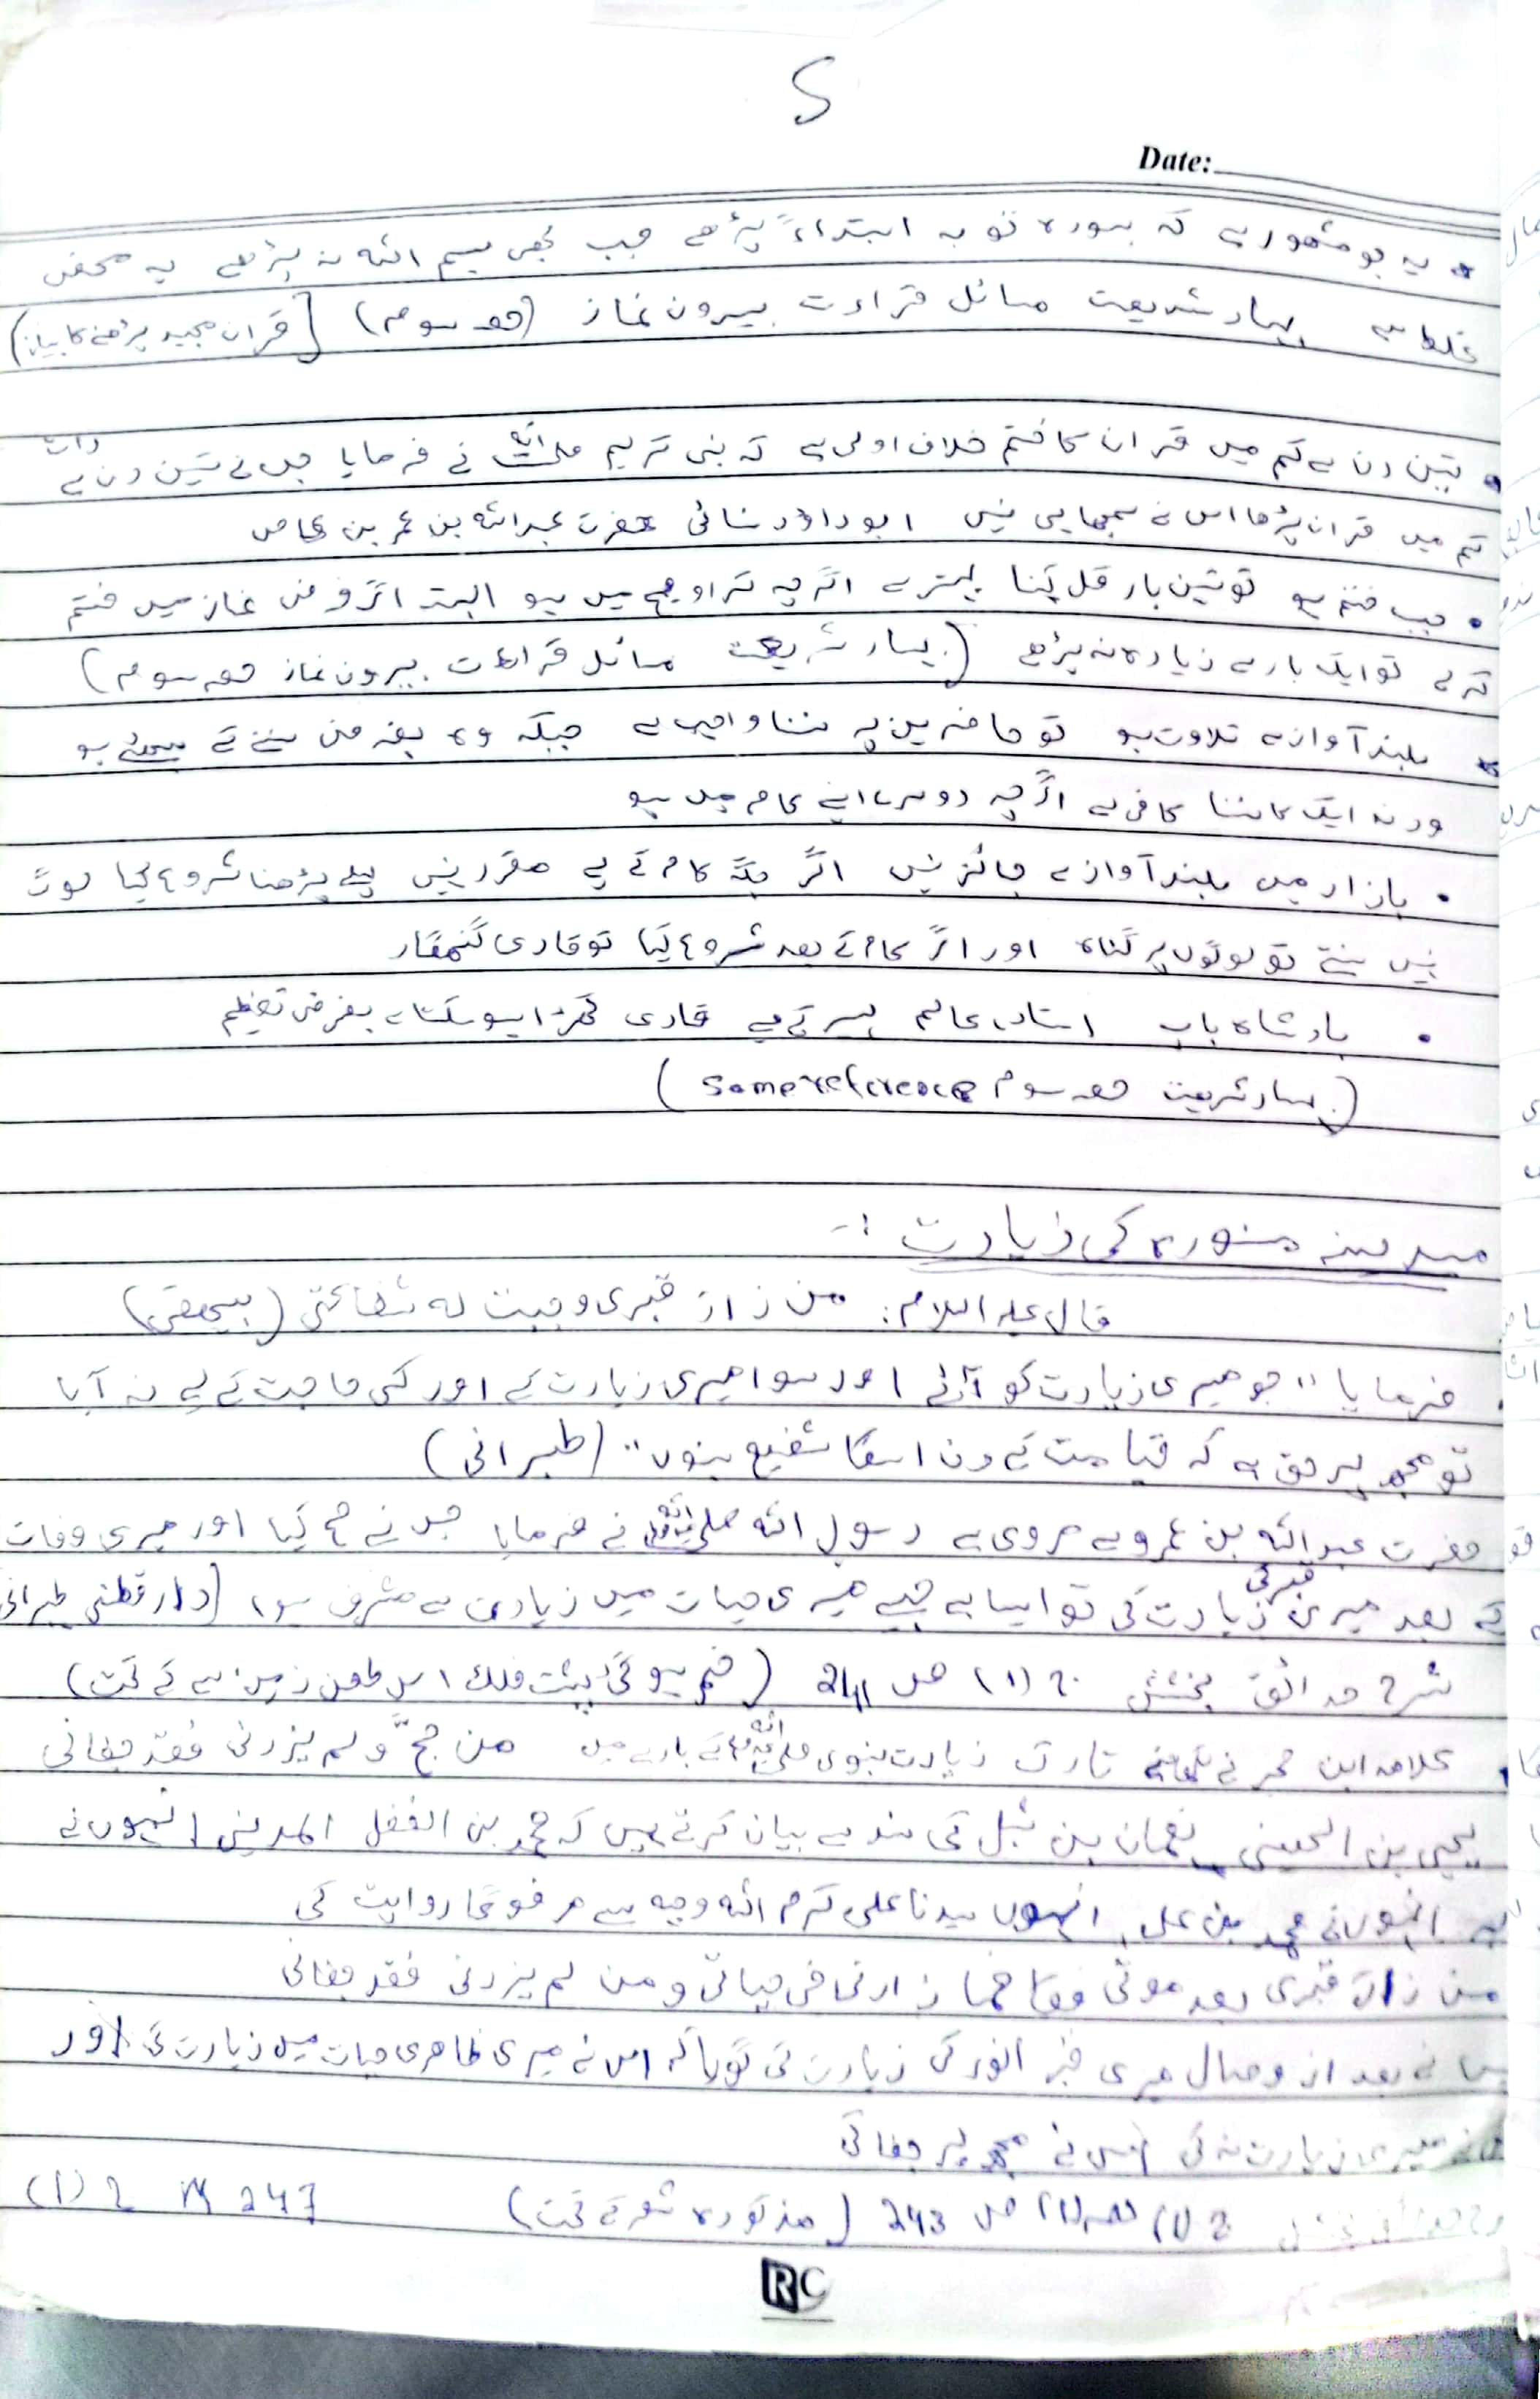 5
Date:
• یہ جو مشہور ہے کہ سورہ توبہ ابتداءً پڑھے جب بھی بسم اللہ نہ پڑھے یہ محض
غلط ہے بہار شریعت مسائل قراءت بیرون نماز (حصہ سوم) [قرآن مجید پڑھنے کا بیان)
• تین دن سے کم میں قرآن کا ختم خلاف اولی ہے کہ نبی کریم صلی اللہ نے فرمایا جس نے تین دن رات سے
کم میں قرآن پڑھا اس نے سمجھا ہی نہیں ابوداؤد نسائی حضرت عبداللہ بن عمر بن عاص
• جب ختم ہو تو تین بار قل کہنا بہتر ہے اگرچہ تراویح میں ہو البتہ اگر فرض نماز میں ختم
کرے تو ایک بار سے زیادہ نہ پڑھے (بہار شریعت مسائل قراءت بیرون نماز حصہ سوم)
• بلند آواز سے تلاوت ہو تو حاضرین پہ سننا واجب ہے جبکہ وہ بغرض سننے کے بیٹھے ہو
ورنہ ایک کا سننا کافی ہے اگرچہ دوسرے اپنے کام میں ہو
• بازار میں بلند آواز سے جائز نہیں اگر جگہ کام کے لیے مقرر نہیں پہلے پڑھنا شروع کیا لوگ
نہیں سنتے تو لوگوں پر گناہ اور اگر کام کے بعد شروع کیا تو قاری گنہگار
• بادشاہ باپ استاد، عالم پیر کے لیے قاری کھڑا ہو سکتا ہے بغرض تعظیم
(بہار شریعت حصہ سوم Same reference)
مدینہ منورہ کی زیارت :-
قال علیہ السلام: من زار قبری وجبت لہ شفاعتی (بیہقی)
• فرمایا "جو میری زیارت کو آئے اور سوا میری زیارت کے اور کسی حاجت کے لیے نہ آیا
تو مجھ پر حق ہے کہ قیامت کے دن اسکا شفیع بنوں" (طبرانی)
حضرت عبداللہ بن عمر سے مروی ہے رسول اللہ صلی اللہ نے فرمایا جس نے حج کیا اور میری وفات
کے بعد میری قبر کی زیارت کی تو ایسا ہے جیسے میری حیات میں زیارت سے مشرف ہوا [دار قطنی طبرانی
شرح حدائق بخشش ج (1) ص 241 (خم ہو گئی پشت فلک اس طعن زمیں سے کے تحت)
علامہ ابن حجر نے تارک زیارت نبوی صلی اللہ کے بارے میں من حج ولم یزرنی فقد جفانی
یحیی بن الحسینی نعمان بن شبل کی سند سے بیان کرتے ہیں کہ محمد بن الفضل المدینی انہوں نے
انہوں نے محمد بن علی، انہوں سیدنا علی کرم اللہ وجہہ سے مرفوعًا روایت کی
من زار قبری بعد موتی فکانما زارنی فی حیاتی و من لم یزرنی فقد جفانی
نے بعد از وصال میری قبر انور کی زیارت کی گویا کہ اس نے میری ظاہری حیات میں زیارت کی اور
میری زیارت نہ کی اس نے مجھ پر جفا کی
ج (1) حصہ (1) ص 243 (مذکورہ شعر کے تحت) 247 ص ج (1)
RC